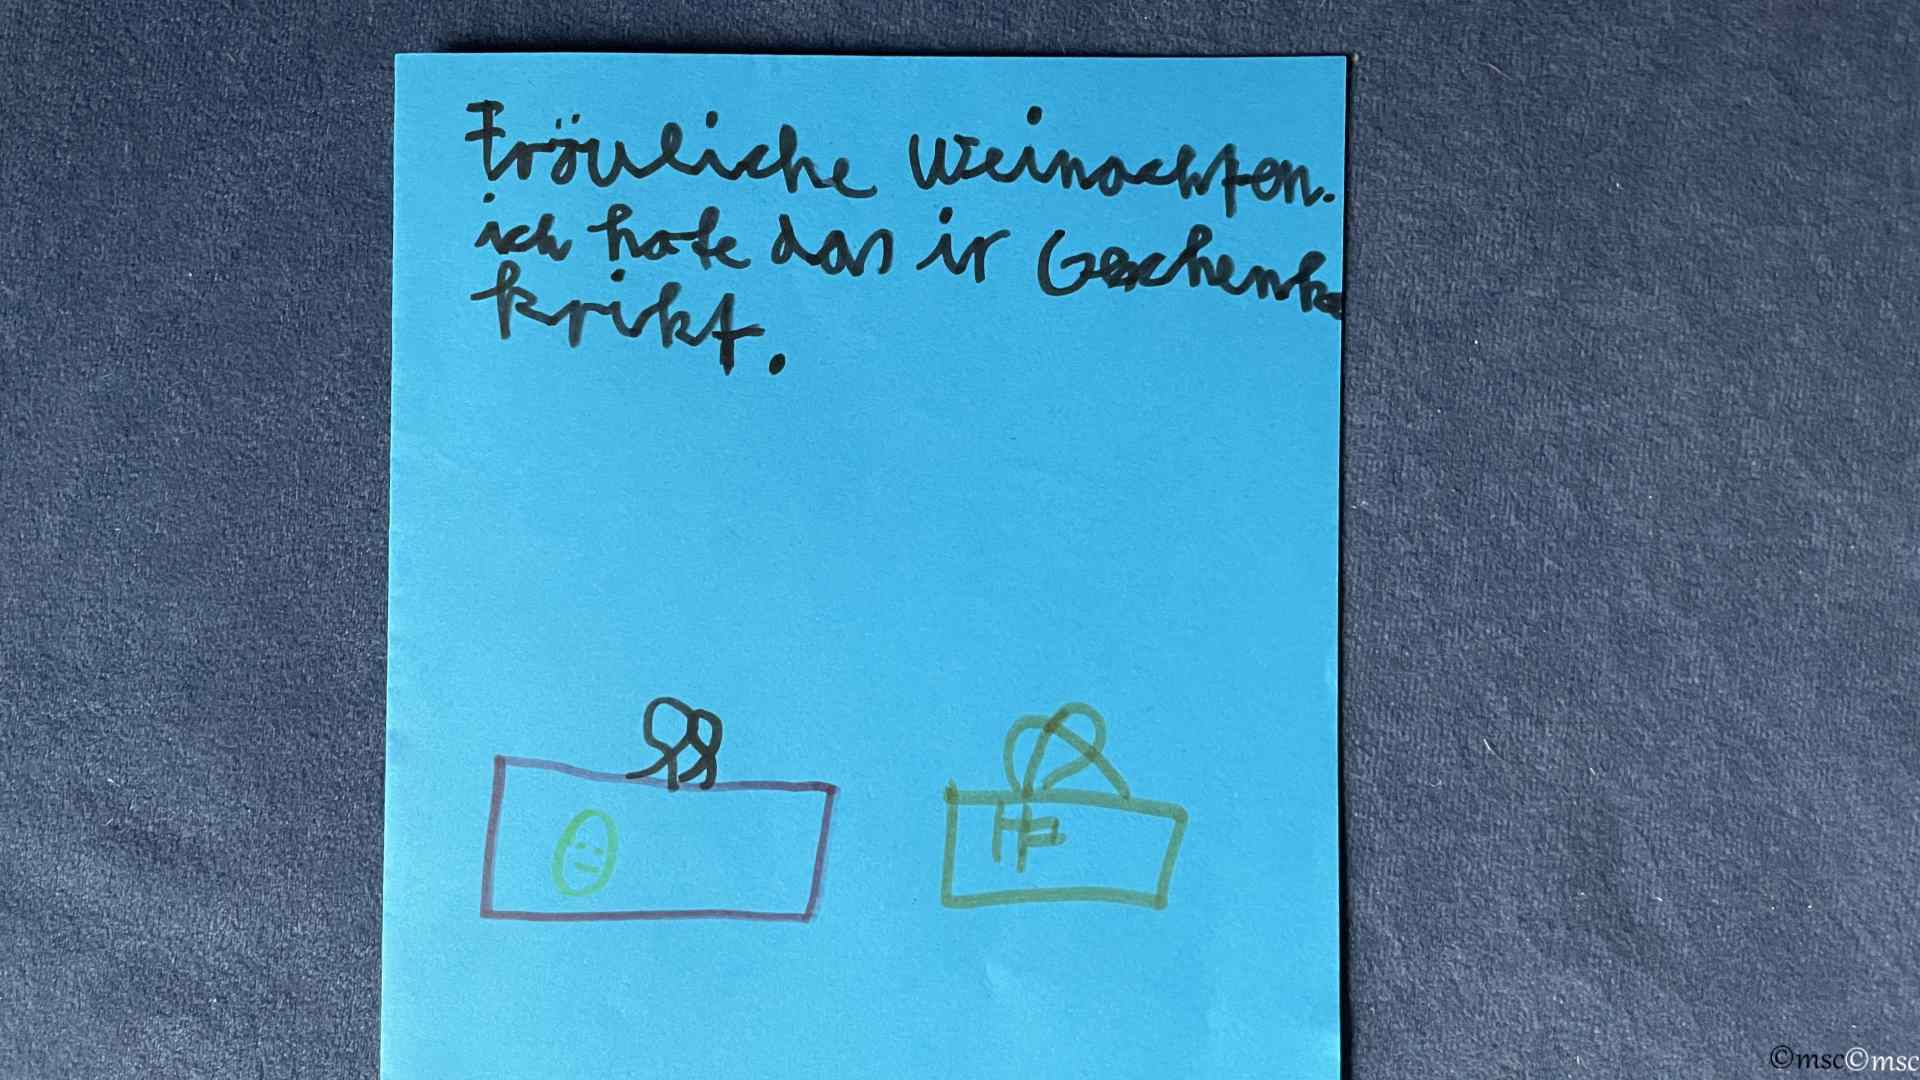 Fröuliche Weinachten.
ich hofe das ir Geschenke
krikt.
©msc©msc